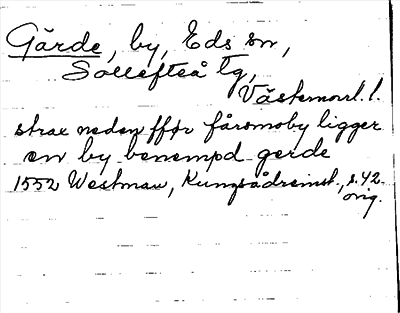 Gärde, by, Eds sn,
Sollefteå tg,
Västernorrl. l.
strax neden ffør fårsmoby ligger
en by benempd gerde
1552 Westman, Kungsådreinst., s. 42
orig.